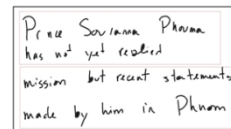 Prince Souvanna Phouma
has not yet replied
mission but recent statements
made by him in Phnom